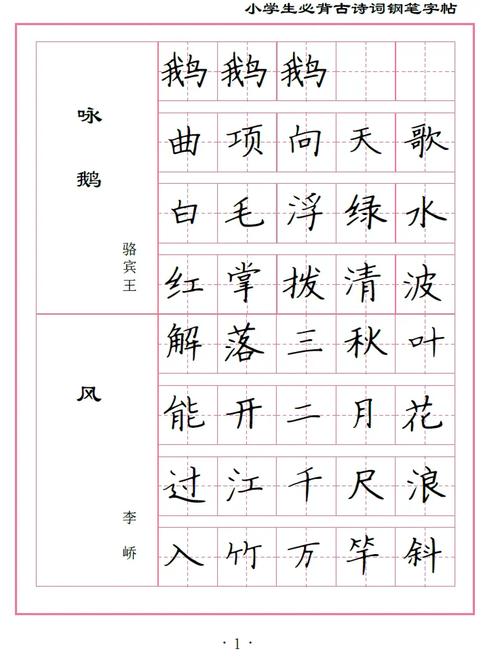 小学生必背古诗词钢笔字帖
咏鹅
骆宾王
鹅鹅鹅
曲项向天歌
白毛浮绿水
红掌拨清波
风
李峤
解落三秋叶
能开二月花
过江千尺浪
入竹万竿斜
·1·